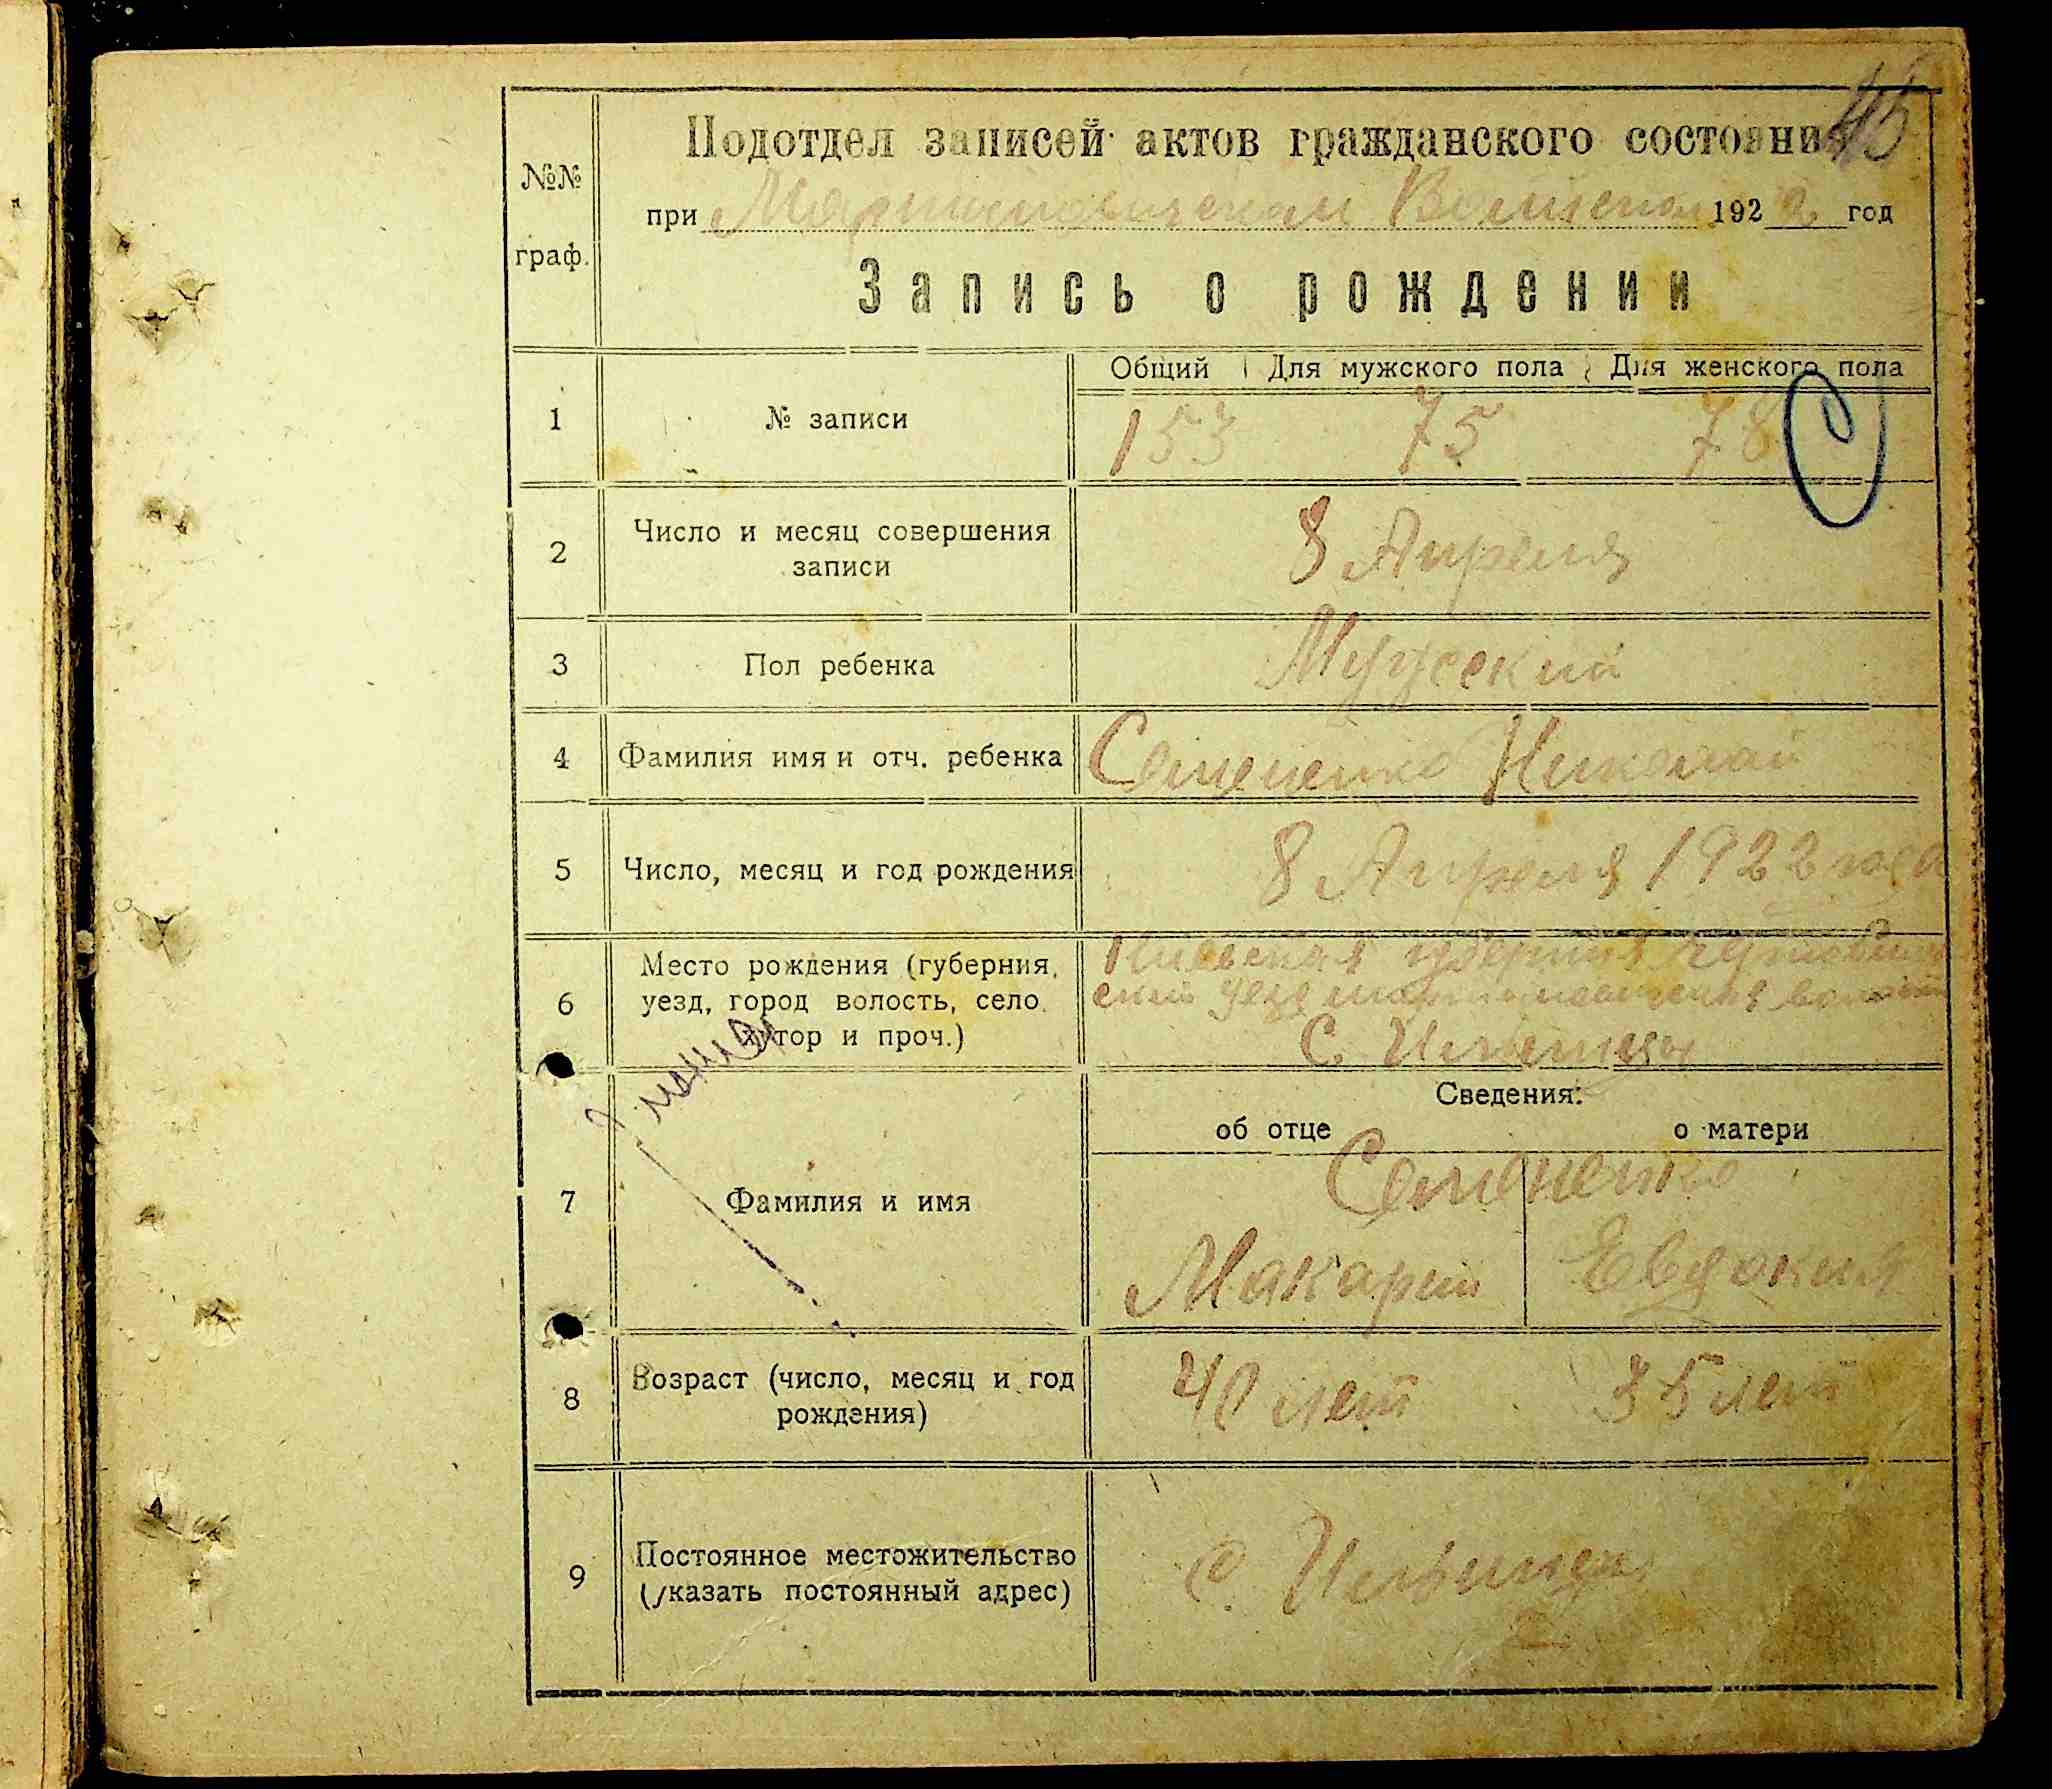 45
Подотдел записей актов гражданского состояния
№№
граф.
при Мартыновичском Волисполк 1922 год
Запись о рождении
Общий Для мужского пола Для женского пола
1 № записи 153 75 78
2 Число и месяц совершения
записи
8 Апреля
3 Пол ребенка Мужеский
4 Фамилия имя и отч. ребенка Семененко Николай
5 Число, месяц и год рождения 8 Апреля 1922 года
6 Место рождения (губерния,
уезд, город волость, село,
хутор и проч.)
Киевская губерния
ский уезд волости
С. Ильинцы
Сведения:
об отце о матери
7 Фамилия и имя
Семененко
Макарий Евдокия
8 Возраст (число, месяц и год
рождения)
40 лет 35 лет
9 Постоянное местожительство
(указать постоянный адрес)
С. Ильинцы